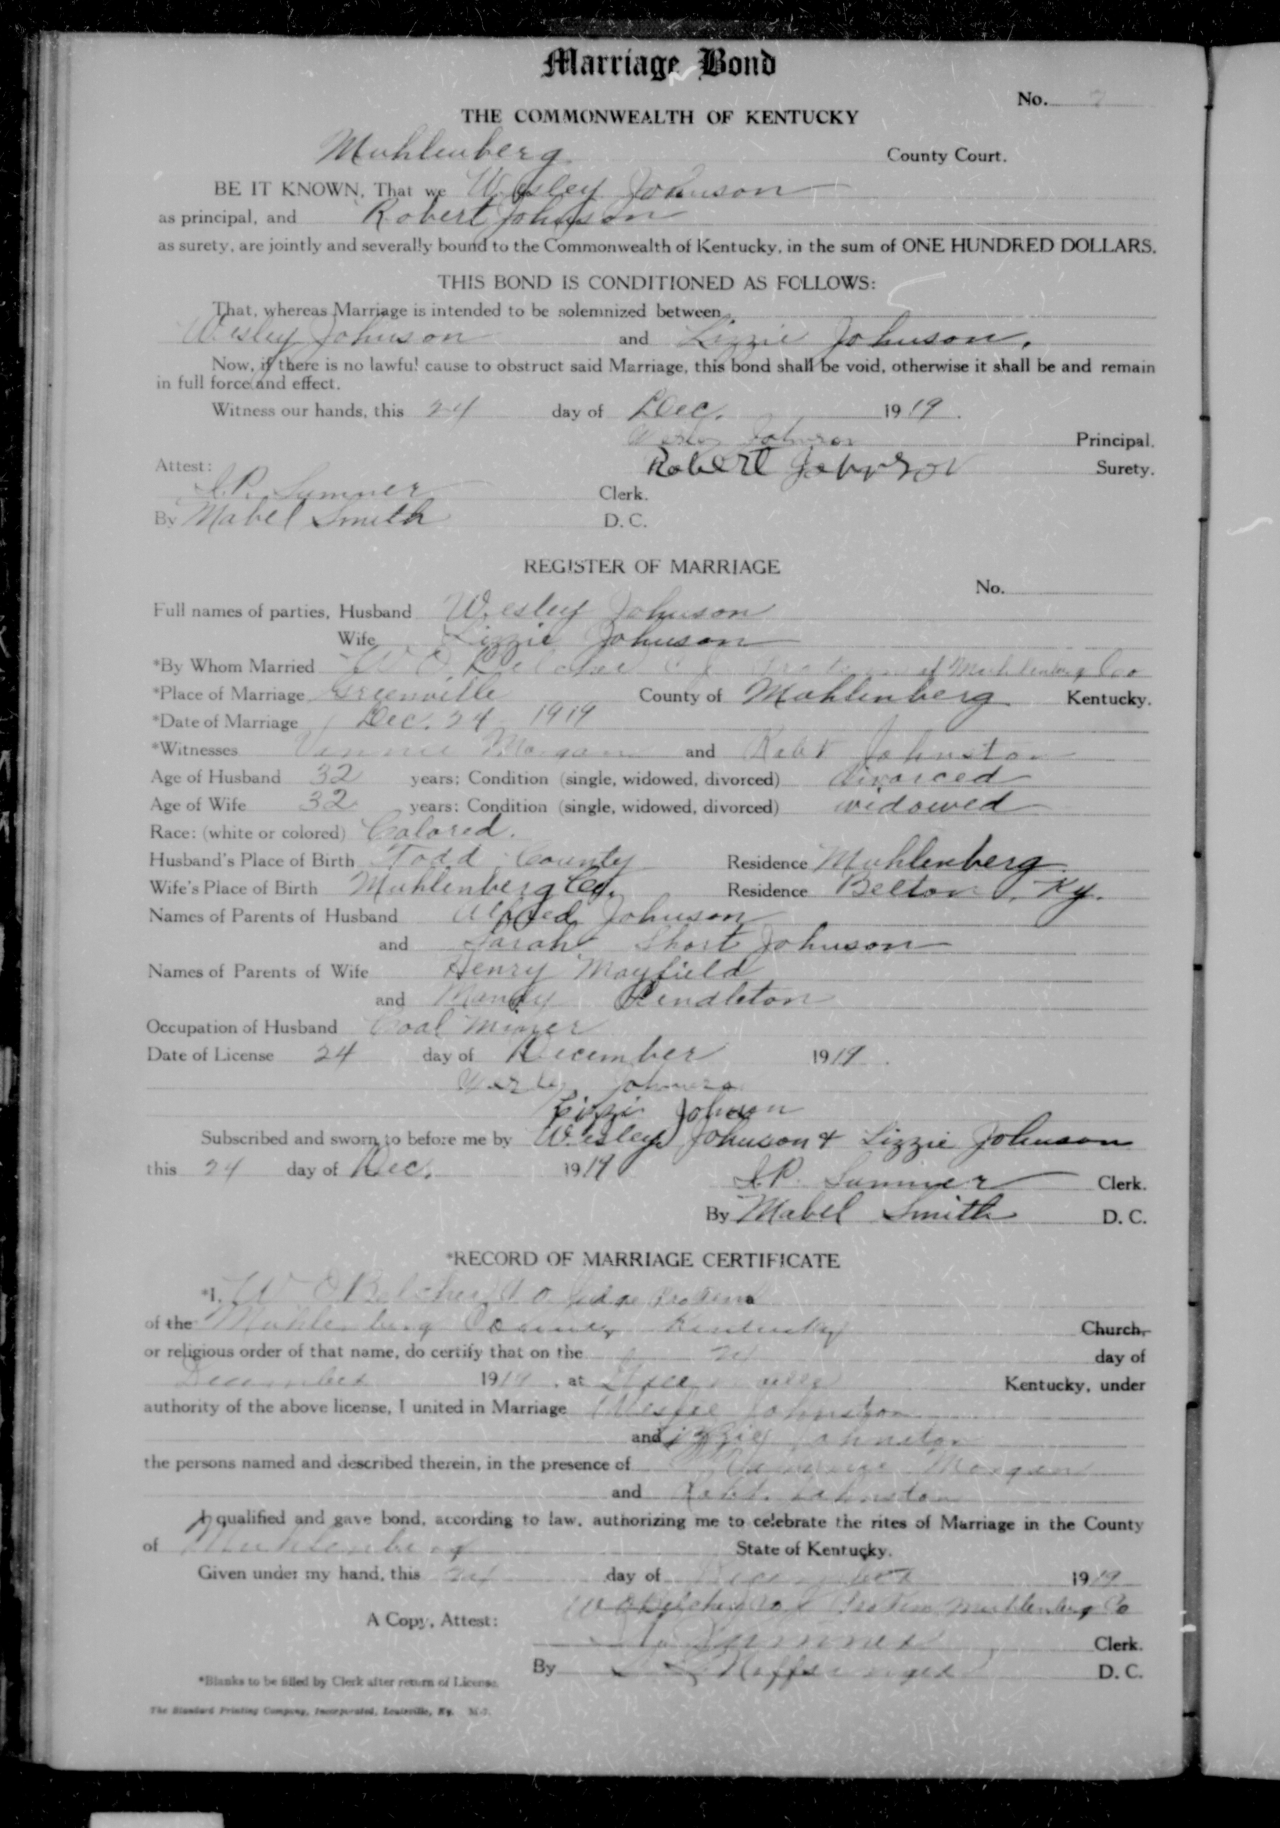 Marriage Bond
No.
THE COMMONWEALTH OF KENTUCKY
Muhlenberg County Court.
BE IT KNOWN, That we Wesley Johnson
as principal, and Robert Johnson
as surety, are jointly and severally bound to the Commonwealth of Kentucky, in the sum of ONE HUNDRED DOLLARS.
THIS BOND IS CONDITIONED AS FOLLOWS:
That, whereas Marriage is intended to be solemnized between
Wesley Johnson and Lizzie Johnson.
Now, if there is no lawful cause to obstruct said Marriage, this bond shall be void, otherwise it shall be and remain
in full force and effect.
Witness our hands, this 24 day of Dec. 1919.
Johnson Principal.
Robert Johnson Surety.
Attest:
Sumner Clerk.
By Mabel Smith D. C.
REGISTER OF MARRIAGE
No.
Full names of parties, Husband Wesley Johnson
Wife Lizzie Johnson
*By Whom Married W O Belcher of Muhlenberg Co
*Place of Marriage Greenville County of Muhlenberg Kentucky.
*Date of Marriage Dec. 24 1919
*Witnesses Morgan and Robt Johnston
Age of Husband 32 years; Condition (single, widowed, divorced) divorced
Age of Wife 32 years; Condition (single, widowed, divorced) widowed
Race: (white or colored) Colored.
Husband's Place of Birth Todd County Residence Muhlenberg
Wife's Place of Birth Muhlenberg Co. Residence Belton, Ky.
Names of Parents of Husband Alfred Johnson
and Sarah Short Johnson
Names of Parents of Wife Henry Mayfield
and Mandy Pendleton
Occupation of Husband Coal Miner
Date of License 24 day of December 1919.
Lizzi Johnson
Subscribed and sworn to before me by Wesley Johnson & Lizzie Johnson
this 24 day of Dec. 1919
Sumner Clerk.
By Mabel Smith D. C.
*RECORD OF MARRIAGE CERTIFICATE
*I, W O Belcher Judge Protem
of the Muhlenberg County Kentucky Church,
or religious order of that name, do certify that on the 24 day of
December 1919, at Greenville Kentucky, under
authority of the above license, I united in Marriage Johnston
and Lizzie Johnston
the persons named and described therein, in the presence of Morgan
and Robt. Johnston
I qualified and gave bond, according to law, authorizing me to celebrate the rites of Marriage in the County
of Muhlenberg State of Kentucky.
Given under my hand, this 24 day of December 1919
W O Belcher Protem Muhlenberg Co
A Copy, Attest:
Sumner Clerk.
By Noffsinger D. C.
*Blanks to be filled by Clerk after return of License.
The Standard Printing Company, Incorporated, Louisville, Ky.